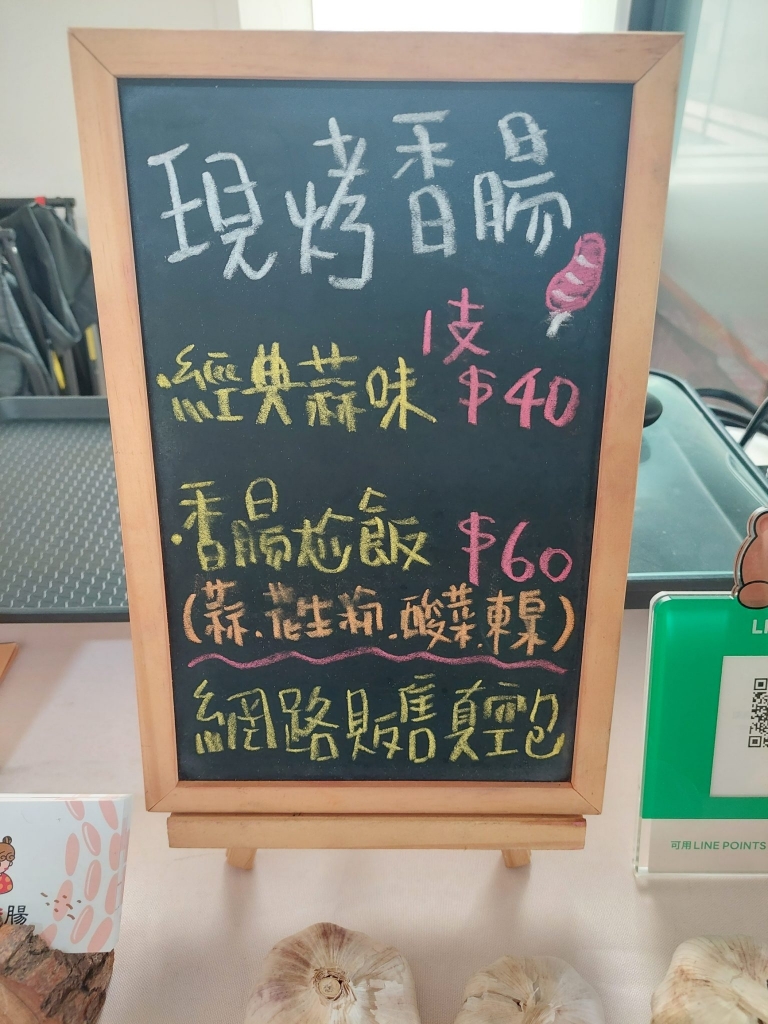 現烤香腸
1支
經典蒜味 $40
·香腸尬飯 $60
(蒜.花生粉.酸菜.東泉)
網路販售真空包
可用LINE POINTS
腸